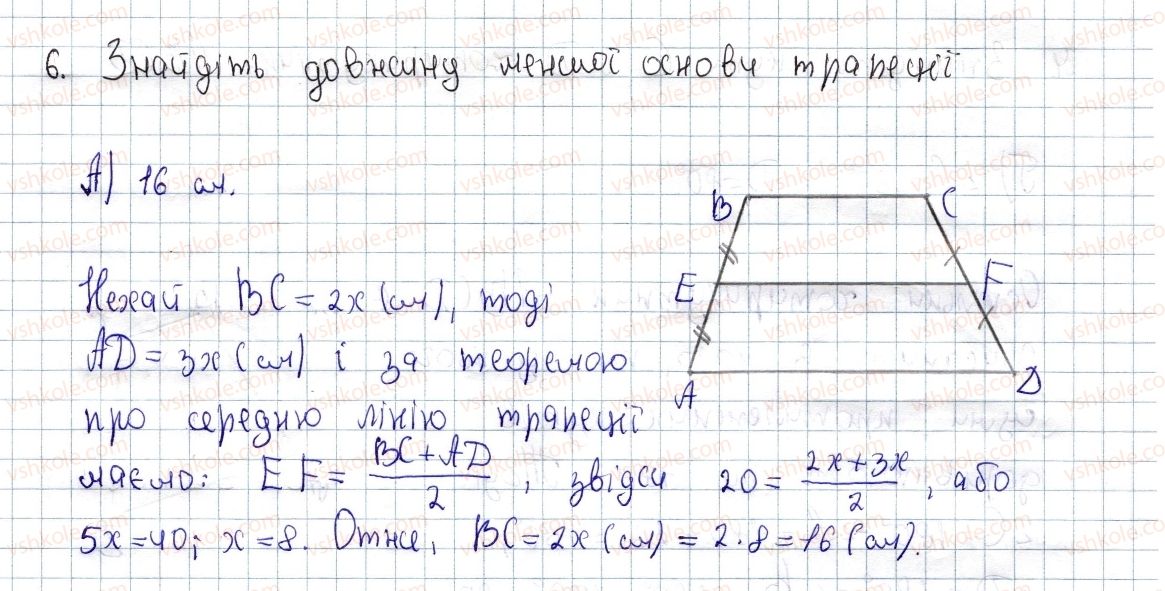 6. Знайдіть довжину меншої основи трапеції
А) 16 см.
Нехай BC = 2x (см), тоді
AD = 3x (см) і за теоремою
про середню лінію трапеції
маємо: EF = (BC + AD)/2, звідси 20 = (2x + 3x)/2, або
5x = 40; x = 8. Отже, BC = 2x (см) = 2 · 8 = 16 (см).
B C
E F
A D
vshkole.com